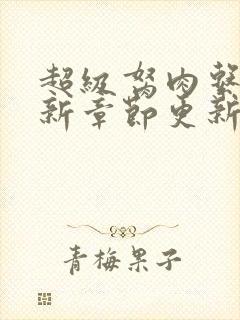 超級駑肉繫
新章節更新
青梅果子